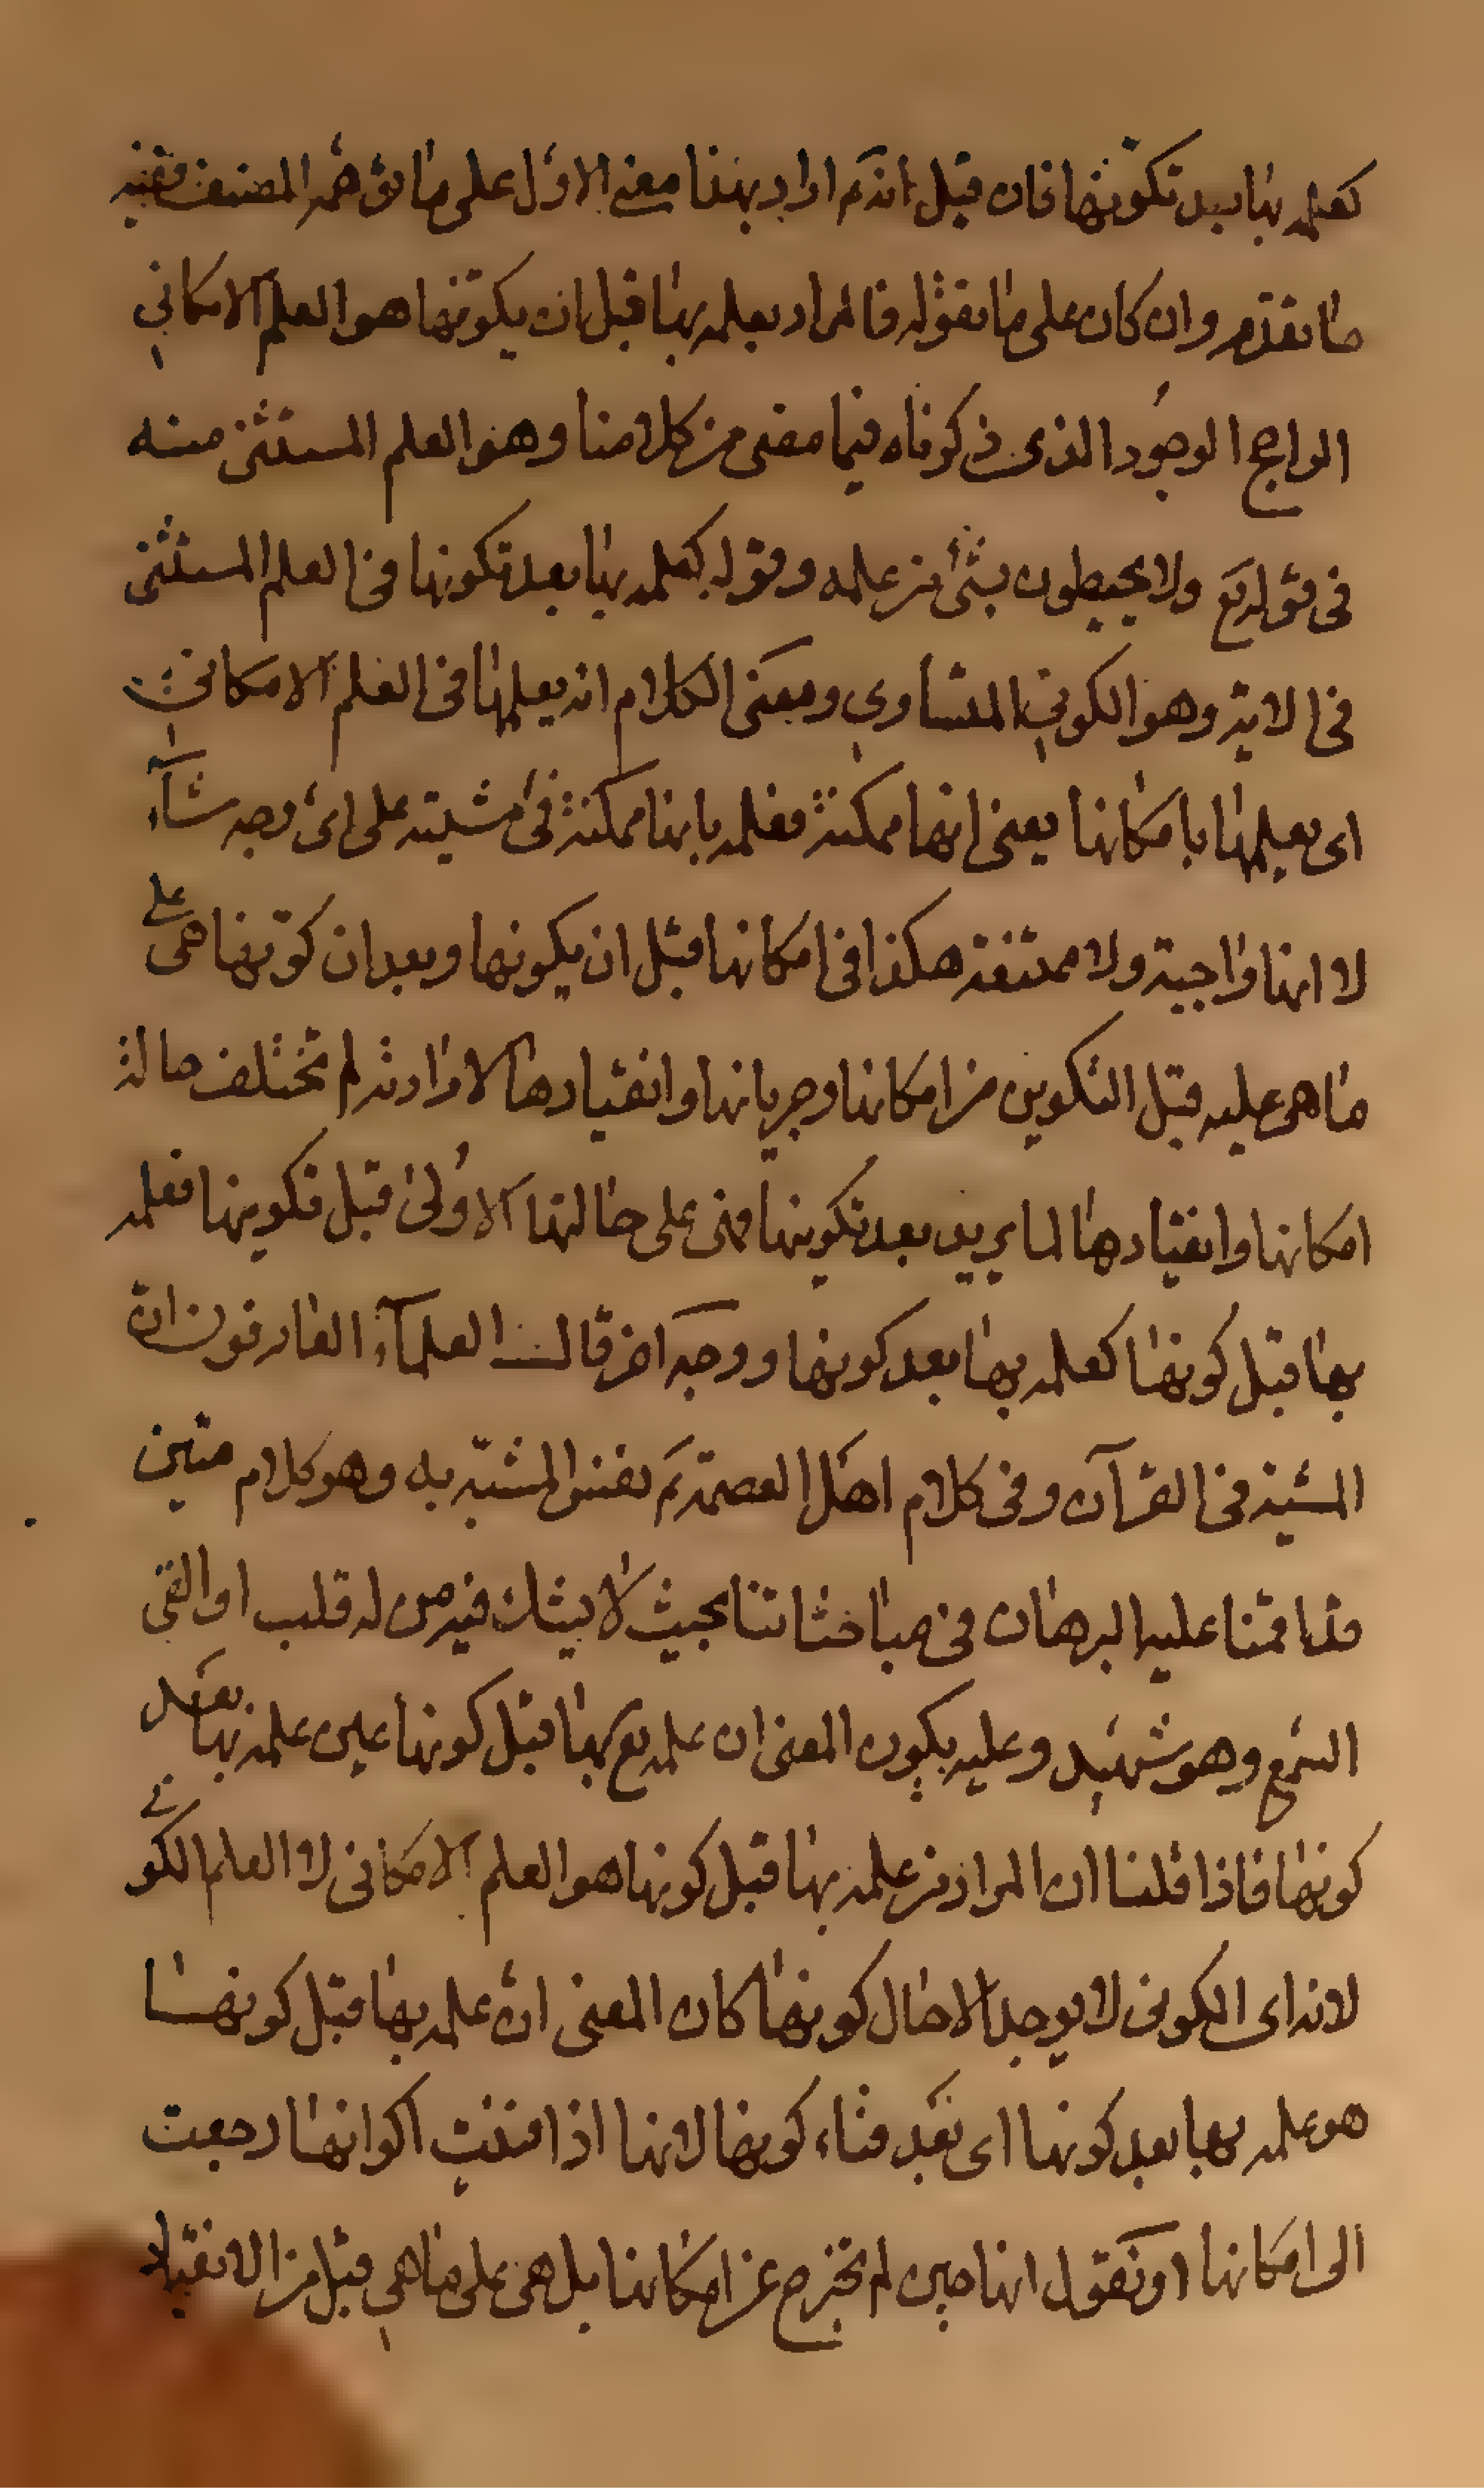 كعلمه بها بعد تكوّنها فان قيل انه ع اراد بهذا معنى الاول على ما توهمه المصنف ففيه
ما تقدم وان كان على ما نقوله فالمراد بعلمه بها قبل ان يكونها هو العلم الامكاني
الراجح الوجود الذى ذكرناه فيما مضى من كلامنا وهو العلم المستثنى منه
فى قوله تع ولا يحيطون بشئ من علمه وقوله كعلمه بها بعد تكونها فى العلم المستثنى
فى الاية وهو الكوني المتساوي ومعنى الكلام انه يعلمها فى العلم الامكاني
اى يعلمها بامكانها يعنى انها ممكنة فعلمه بانها ممكنة فى مشيته على اى وجه شاء
لا انها واجبة ولا ممتنعة هكذا فى امكانها قبل ان يكونها وبعد ان كونها هى على
ما هى عليه قبل التكوين من امكانها وجريانها وانقيادها لارادته لم تختلف حالة
امكانها وانقيادها لما يريد بعد تكوينها فهى على حالتها الاولى قبل تكوينها فعلمه
بها قبل كونها كعلمه بها بعد كونها ووجه اخر قال العلماء العارفون ان
المشبه فى القرآن وفى كلام اهل العصمة ع نفس المشبّه به وهو كلام متين
قد اقمنا عليه البرهان فى مباحثاتنا بحيث لا يشك فيه من له قلب او القى
السمع وهو شهيد وعليه يكون المعنى ان علمه تع بها قبل كونها عين علمه بها بعد
كونها فاذا قلنا ان المراد من علمه بها قبل كونها هو العلم الامكانى لا العلم الكونى
لانه اى الكونى لا يوجد الا حال كونها كان المعنى ان علمه بها قبل كونها
هو علمه بها بعد كونها اى بعد فناء كونها لانها اذا فنيت اكوانها رجعت
الى امكانها او نقول انها حين لم تخرج عن امكانها بل هى على ما هي قبل من الانقياد